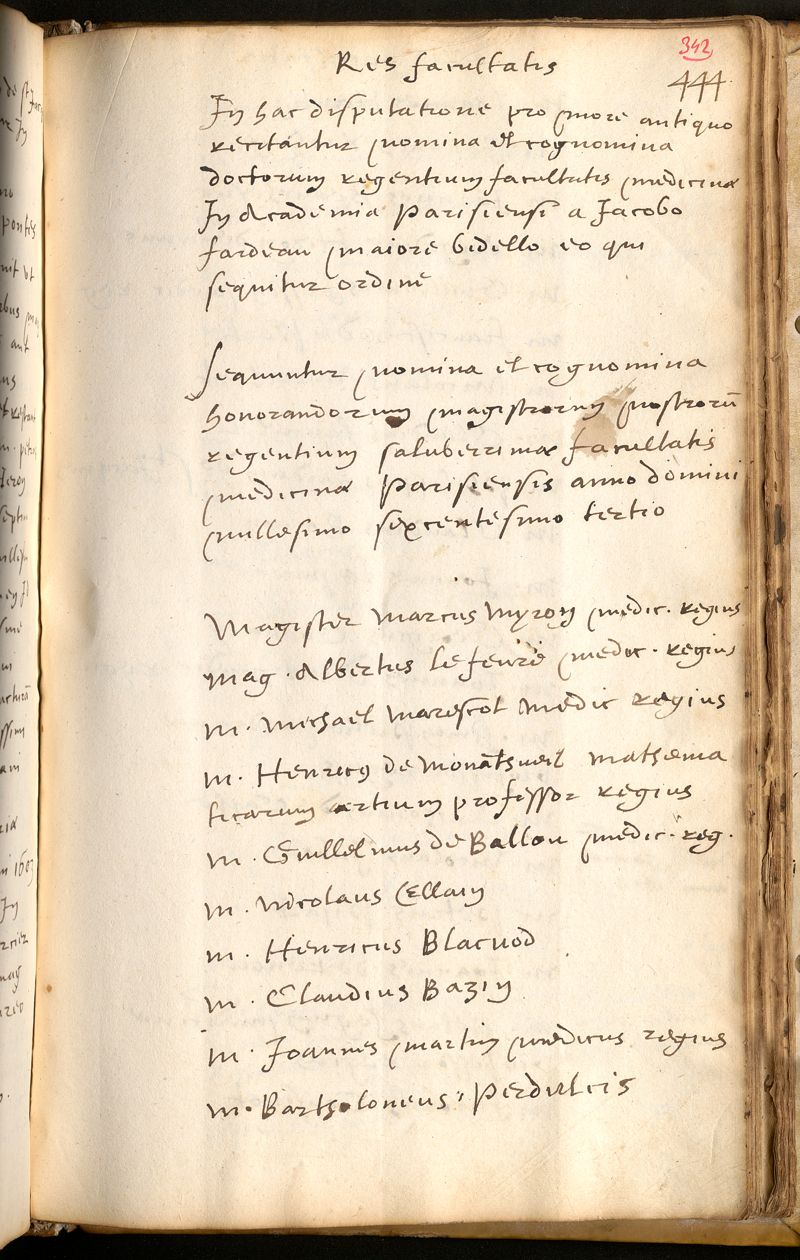 342
444
Res facultatis
In hac disputatione pro more antiquo
recitantur nomina et cognomina
doctorum regentium facultatis medicinæ
In Academia Parisiensi a Jacobo
fardeau maiore bidello eo qui
sequitur ordine
Sequuntur nomina et cognomina
honorandorum magistrorum nostrorū
regentium saluberrimæ facultatis
medicinæ Parisiensis anno domini
millesimo sexcentesimo tertio
Magister Marcus Myron medic. regius
Mag. Albertus le fevre medic. regius
M. Michael Marescot Medic regius
M. Henricus de Monantheuil mathema
ticarum artium professor regius
M. Guillelmus de Ballou medic. reg.
M. Nicolaus Ellain
M. Henricus Blacvod
M. Claudius Bazin
M. Joannes martin medicus regius
M. Bartholomeus Perdulcis